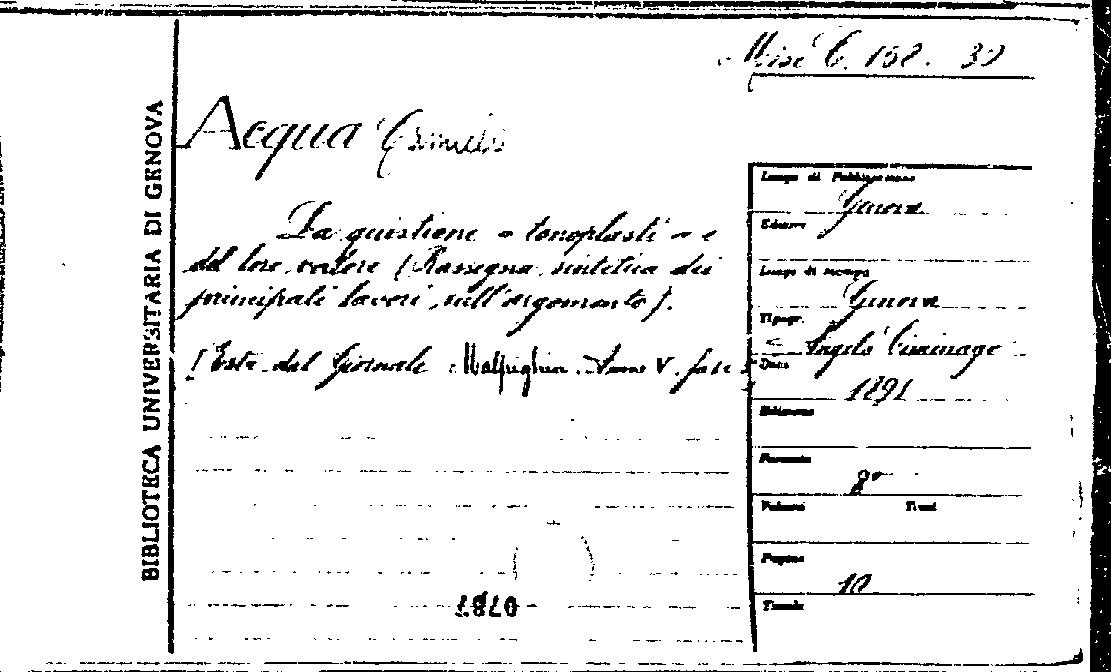 BIBLIOTECA UNIVERSITARIA DI GENOVA
Misc C. 30
Acqua Camillo
La quistione « tonoplasti » e
del loro valore (Rassegna sintetica dei
principali lavori sull'argomento).
(Estr. dal Giornale Malpighia. Anno V. fasc
Luogo di Pubblicazione
Genova
Editore
Luogo di stampa
Genova
Tipogr.
Angelo Ciminago
Data
1891
Edizione
Formato
8°
Volumi Tomi
Pagine
10
0787